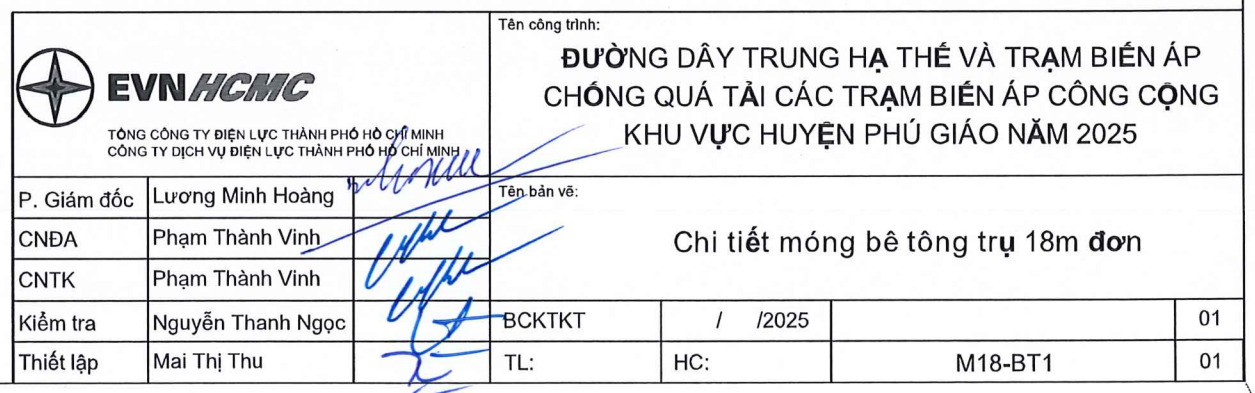 EVNHCMC
TỔNG CÔNG TY ĐIỆN LỰC THÀNH PHỐ HỒ CHÍ MINH
CÔNG TY DỊCH VỤ ĐIỆN LỰC THÀNH PHỐ HỒ CHÍ MINH
Tên công trình:
ĐƯỜNG DÂY TRUNG HẠ THẾ VÀ TRẠM BIẾN ÁP
CHỐNG QUÁ TẢI CÁC TRẠM BIẾN ÁP CÔNG CỘNG
KHU VỰC HUYỆN PHÚ GIÁO NĂM 2025
P. Giám đốc Lương Minh Hoàng
CNĐA Phạm Thành Vinh
CNTK Phạm Thành Vinh
Kiểm tra Nguyễn Thanh Ngọc
Thiết lập Mai Thị Thu
Tên bản vẽ:
Chi tiết móng bê tông trụ 18m đơn
BCKTKT / /2025 01
TL: HC: M18-BT1 01